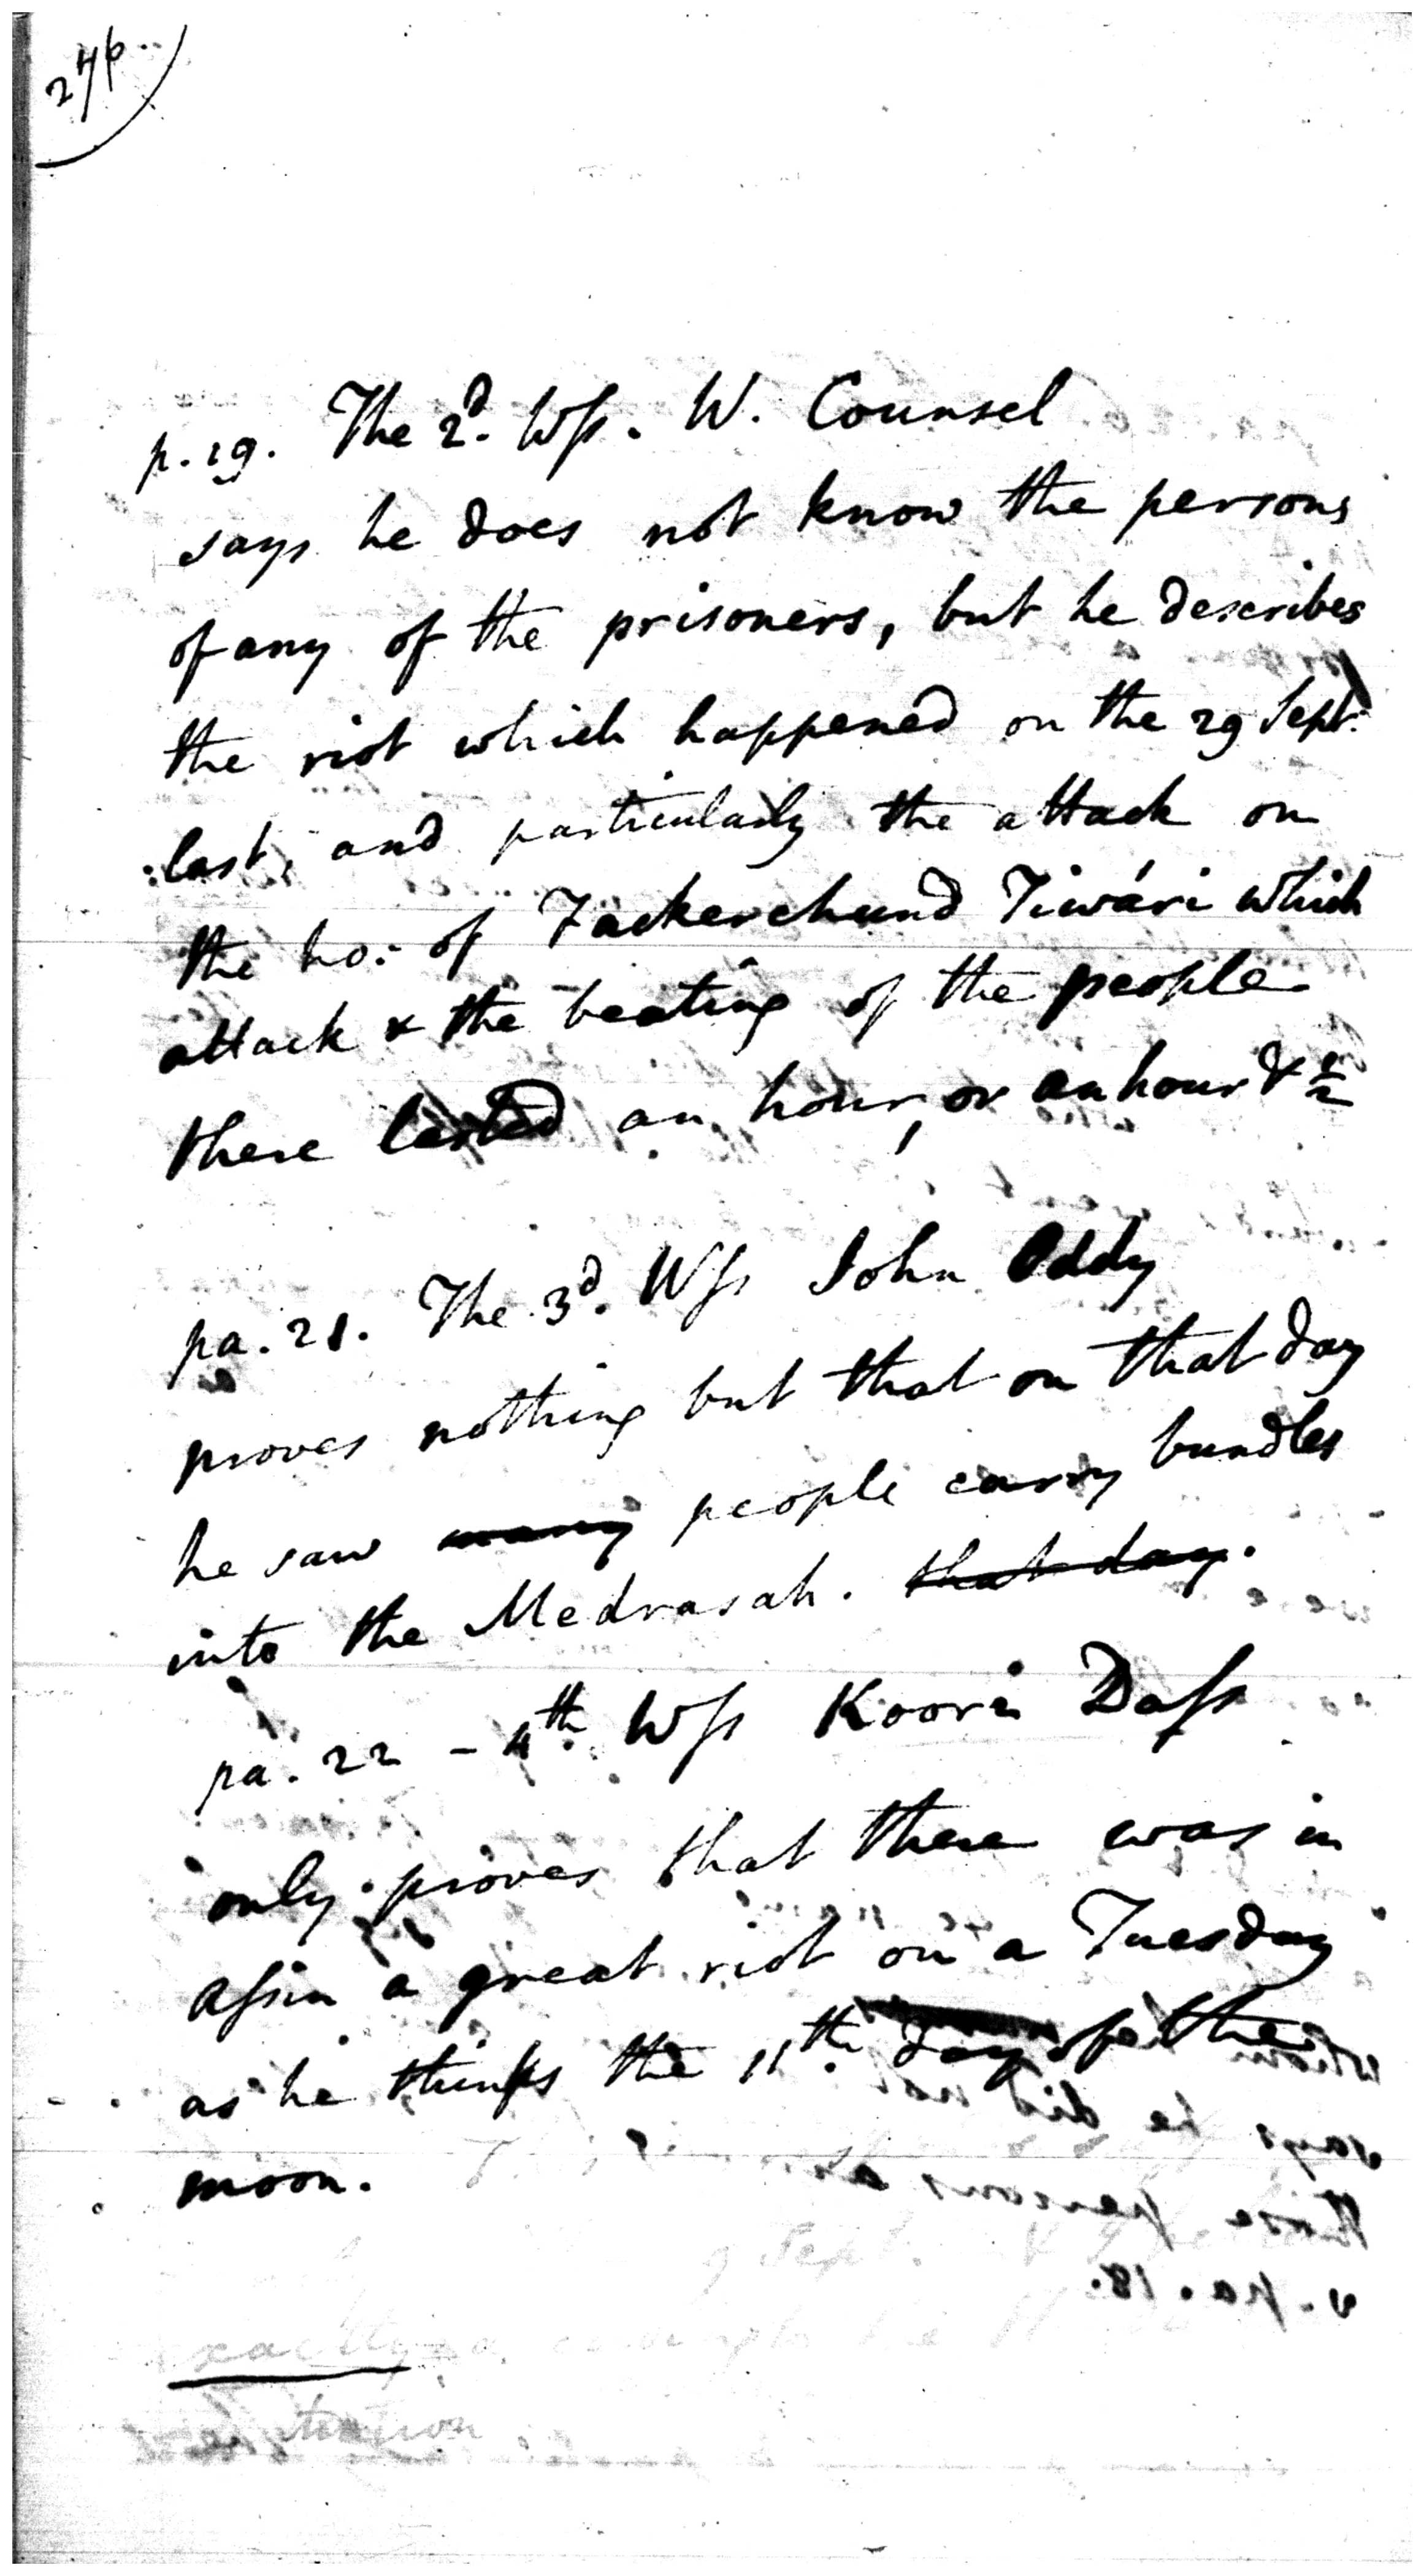 246
p. 19. The 2d. Wss. W. Counsel
says he does not know the persons
of any of the prisoners, but he describes
the riot which happened on the 29 Sept.
last, and particularly the attack on
the ho: of Tackerchund Tiwári which
attack & the beating of the people
there lasted an hour, or an hour & ½
pa. 21. The 3d. Wss John Oddy
proves nothing but that on that day
he saw many people carry bundles
into the Medrasah. that day.
pa. 22 - 4th. Wss Koori Dass
only proves that there was in
Assin a great riot on a Tuesday
as he thinks the 11th. day of the
moon.